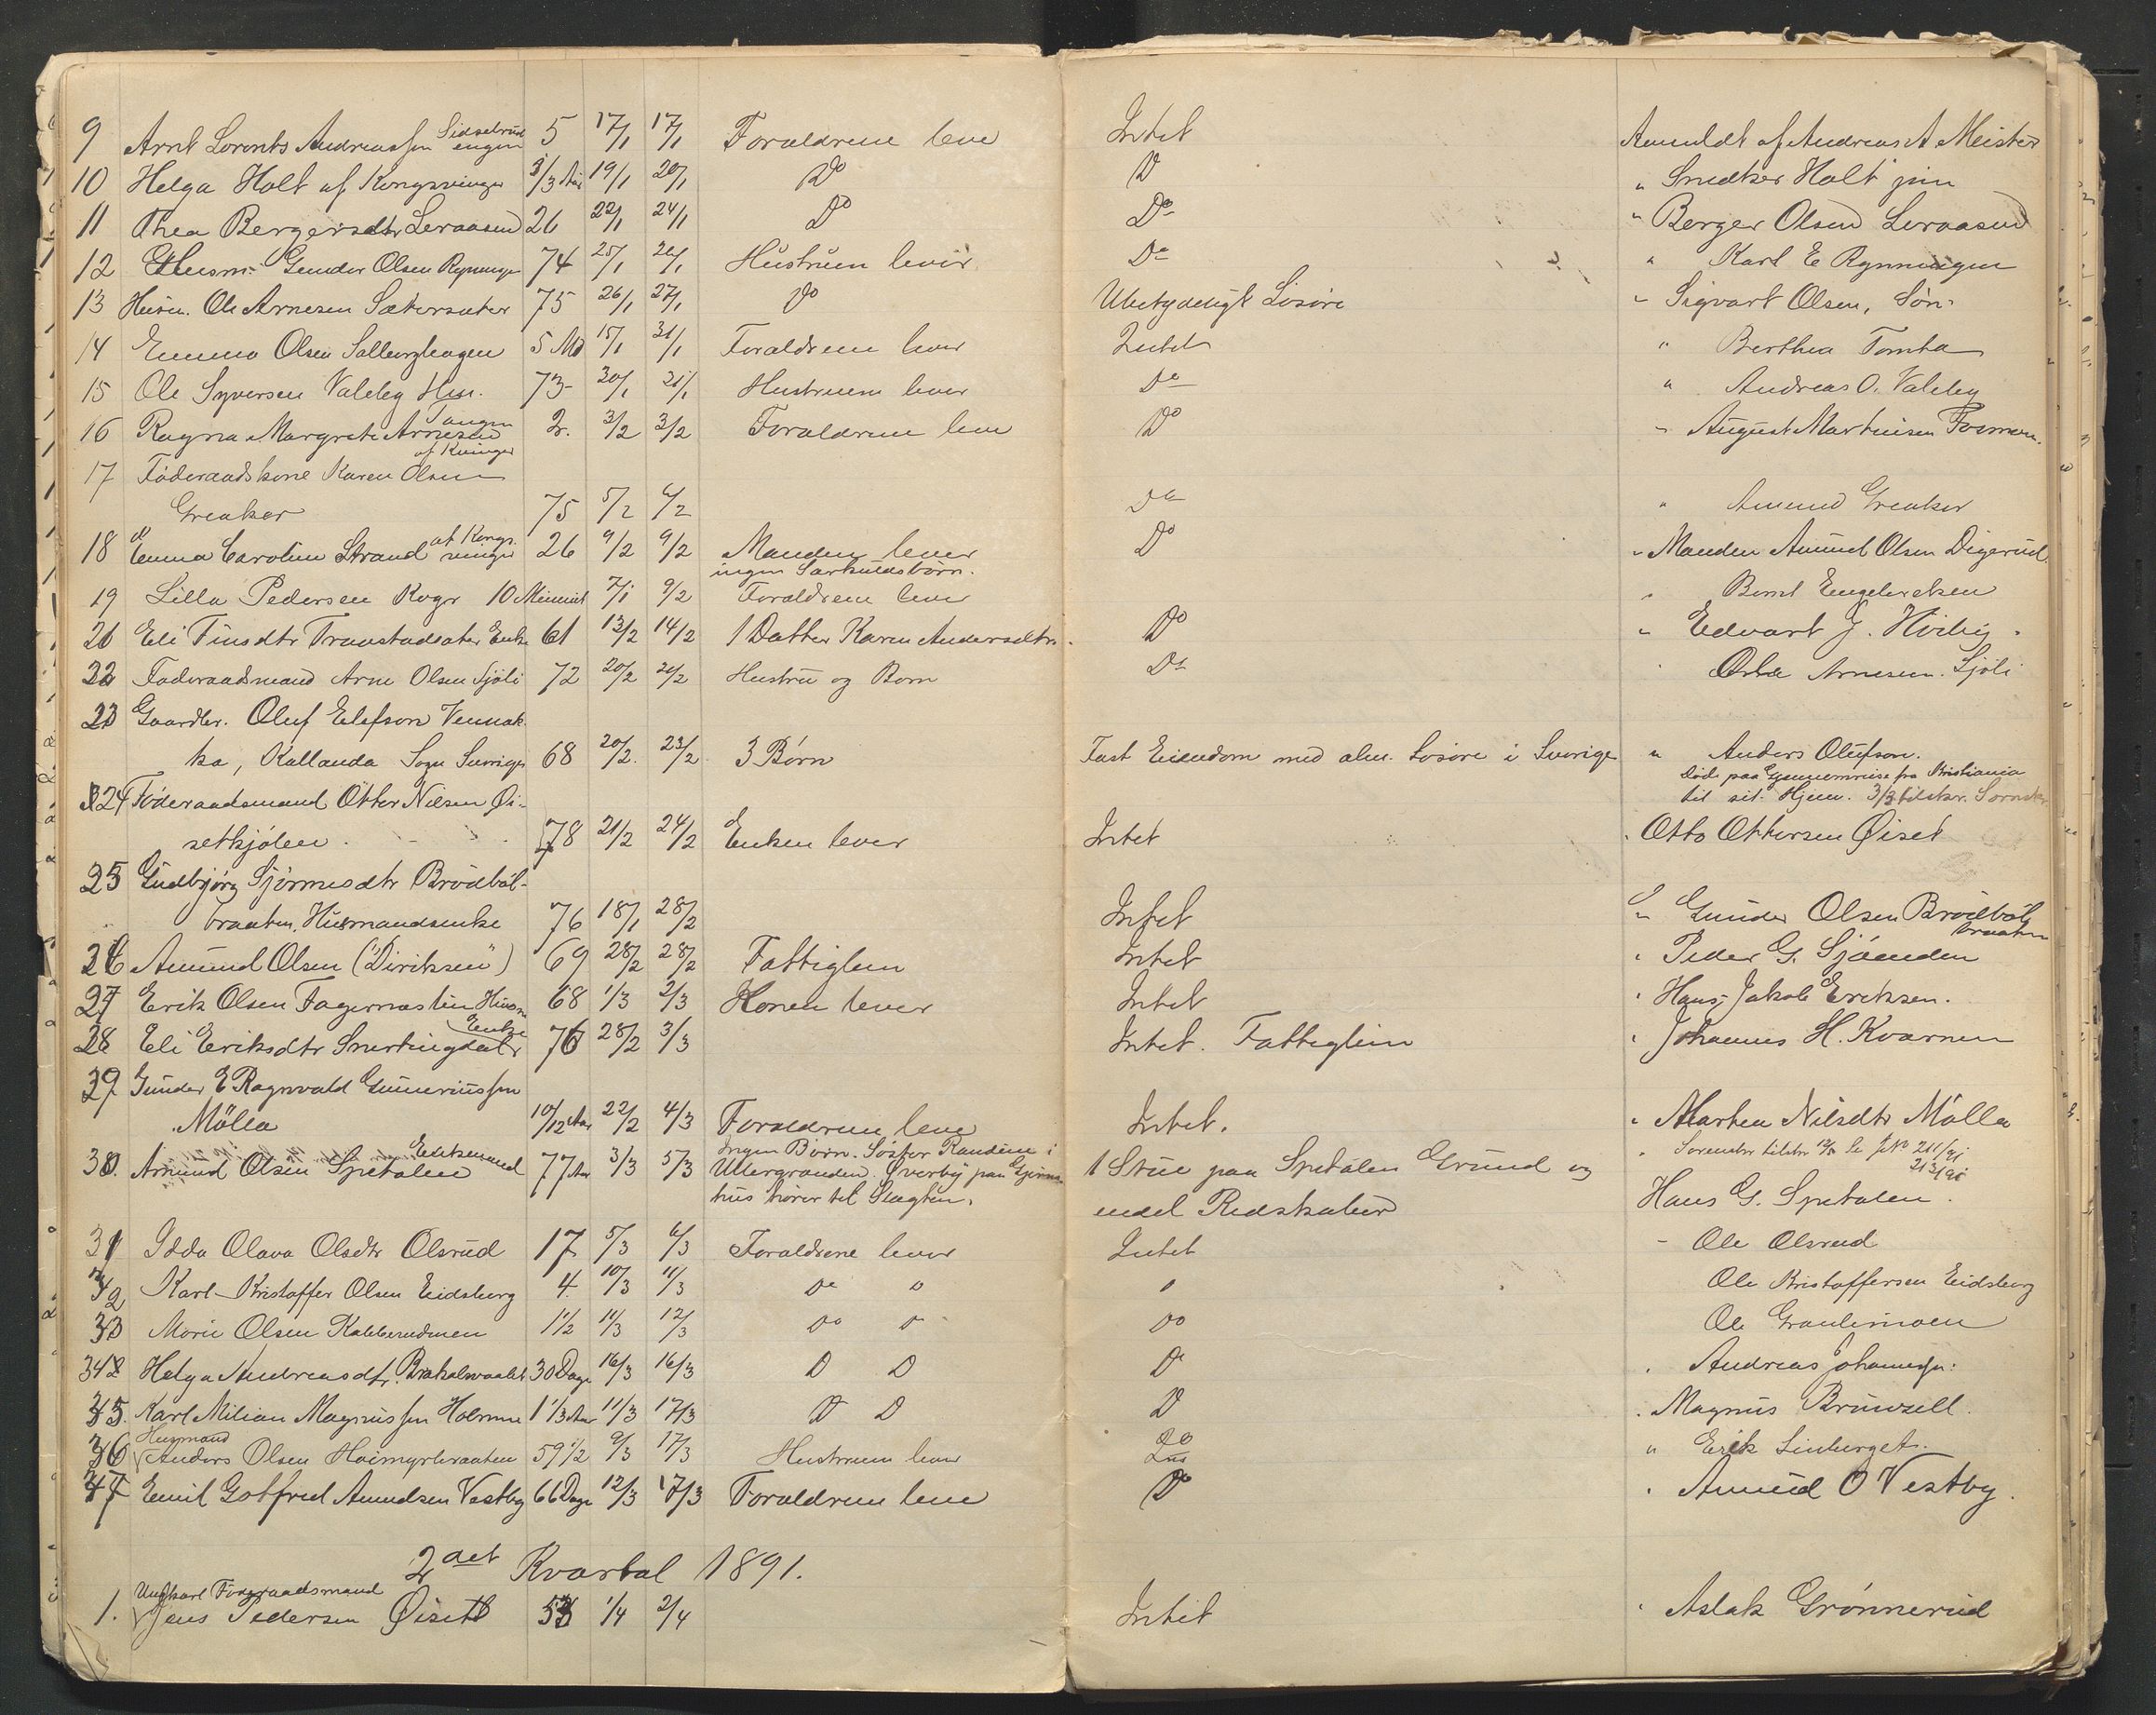 9 Arnt Lorents Andreassen Sidselrud engen 5 17/1 17/1 Forældrene leve Intet Anmeldt af Andreas A Meister
10 Helga Holt af Kongsvinger 3 1/3 Aar 19/1 20/1 Do D " Snedker Holt jun
11 Thea Bergersdtr Leraasen 26 22/1 24/1 Do Do " Berger Olsen Leraasen
12 Husm. Gunder Olsen Rynninge 74 25/1 26/1 Hustruen lever Do " Karl E Rynningen
13 Husm. Ole Arnesen Sætersæter 75 26/1 27/1 Do Ubetydeligt Løsøre " Sigvart Olsen, Søn
14 Emma Olsen Solberghagen 5 Md 15/1 31/1 Forældrene lever Intet " Berthea Tomta
15 Ole Syversen Valeby Hus. 73 30/1 31/1 Hustruen lever Do " Andreas O. Valeby
16 Ragna Margrete Arnesen Tangen af Kvinger 2 3/2 3/2 Forældrene leve Do " August Martinsen Formen.
17 Føderaadskone Karen Olsen
Greaker 75 5/2 6/2 Do " Amund Greaker
18 Emma Caroline Strand af Kongsvinger 26 9/2 9/2 Manden lever Do " Manden Amund Olsen Digerud
ingen Særkuldsbørn.
19 Lilla Pedersen Roger 10 Minuut 7/1 9/2 Forældrene lever " Bernt Engebretsen
21 Eli Finsdtr Traustadsæter Enke 61 13/2 14/2 1 Datter Karen Andersdtr. Do " Edvart J. Hviby
22 Føderaadsmand Arne Olsen Sjøli 72 20/2 20/2 Hustru og Børn Do Arnesen Sjøli
23 Gaardbr. Oluf Elefson Vennak
ka, Kallanda Sogn Sverige 68 20/2 23/2 3 Børn Fast Eiendom med alm. Løsøre i Sverige " Anders Olufson.
Døde paa Gjennemreise fra Kristiania
til sit Hjem. 3/3 tilskr. Sorenskr.
24 Føderaadsmand Otter Nilsen Øi-
setkjølen 78 21/2 24/2 Enken lever Intet " Otto Ottersen Øiset
25 Gudbjørg Bjørnesdtr Brødbøl-
braaten, Husmandsenke 76 18/1 28/2 Intet " Gunder Olsen Brødbøl
braaten
26 Amund Olsen ("Diriksen") 69 28/2 28/2 Fattiglem Intet " Peder G. Sjøenden
27 Erik Olsen Fagernæslien Husm 68 1/3 2/3 Konen lever Intet " Hans Jakob Eriksen.
28 Eli Eriksdtr Snertingdal Enke 76 28/2 3/3 Intet. Fattiglem " Johannes H. Kvarnen
29 Gunder E Ragnvald Gunneriussen
Mølla 10/12 Aar 22/2 4/3 Forældrene leve Intet. " Marthea Nilsdtr Mølla
30. Amund Olsen Spetalen Enkemand 77 Aar 3/3 5/3 Ingen Børn. Søster Randine i
Ullergranden Øverby paa Grinna-
hus hører til Slægten. 1 Stue paa Spetalen Grund og
endel Redskaber " Sorenskr tilskr Se JNo 211/91
213/91
Hans G. Spetalen.
31 Idda Olava Olsdtr Olsrud 17 5/3 6/3 Forældrene lever Intet " Ole Olsrud
32 Karl Kristoffer Olsen Eidsberg 4. 10/3 11/3 Do D " Ole Kristoffersen Eidsberg
33 Marie Olsen Kabberudmoen 1 1/2 11/3 12/3 Do D Do Ole Granlimoen
34 Helga Andreasdtr. 30 Dage 16/3 16/3 D D D " Andreas Johannessen.
35. Karl Milian Magnussen Holmen 1 1/3 Aar 11/3 17/3 D D D " Magnus Brunzell.
36 Husmand Anders Olsen Høimyrbraaten 59 1/2 9/3 17/3 Hustruen lever Do " Erik Linberget.
37 Emil Gotfred Amundsen Vestby 66 Dage 12/3 17/3 Forældrene leve Do " Amund O Vestby.
2det Kvartal 1891.
1. Ungkarl Føderaadsmand Jens Pedersen Øiset 53 1/4 2/4 Intet " Aslak Grønnerud